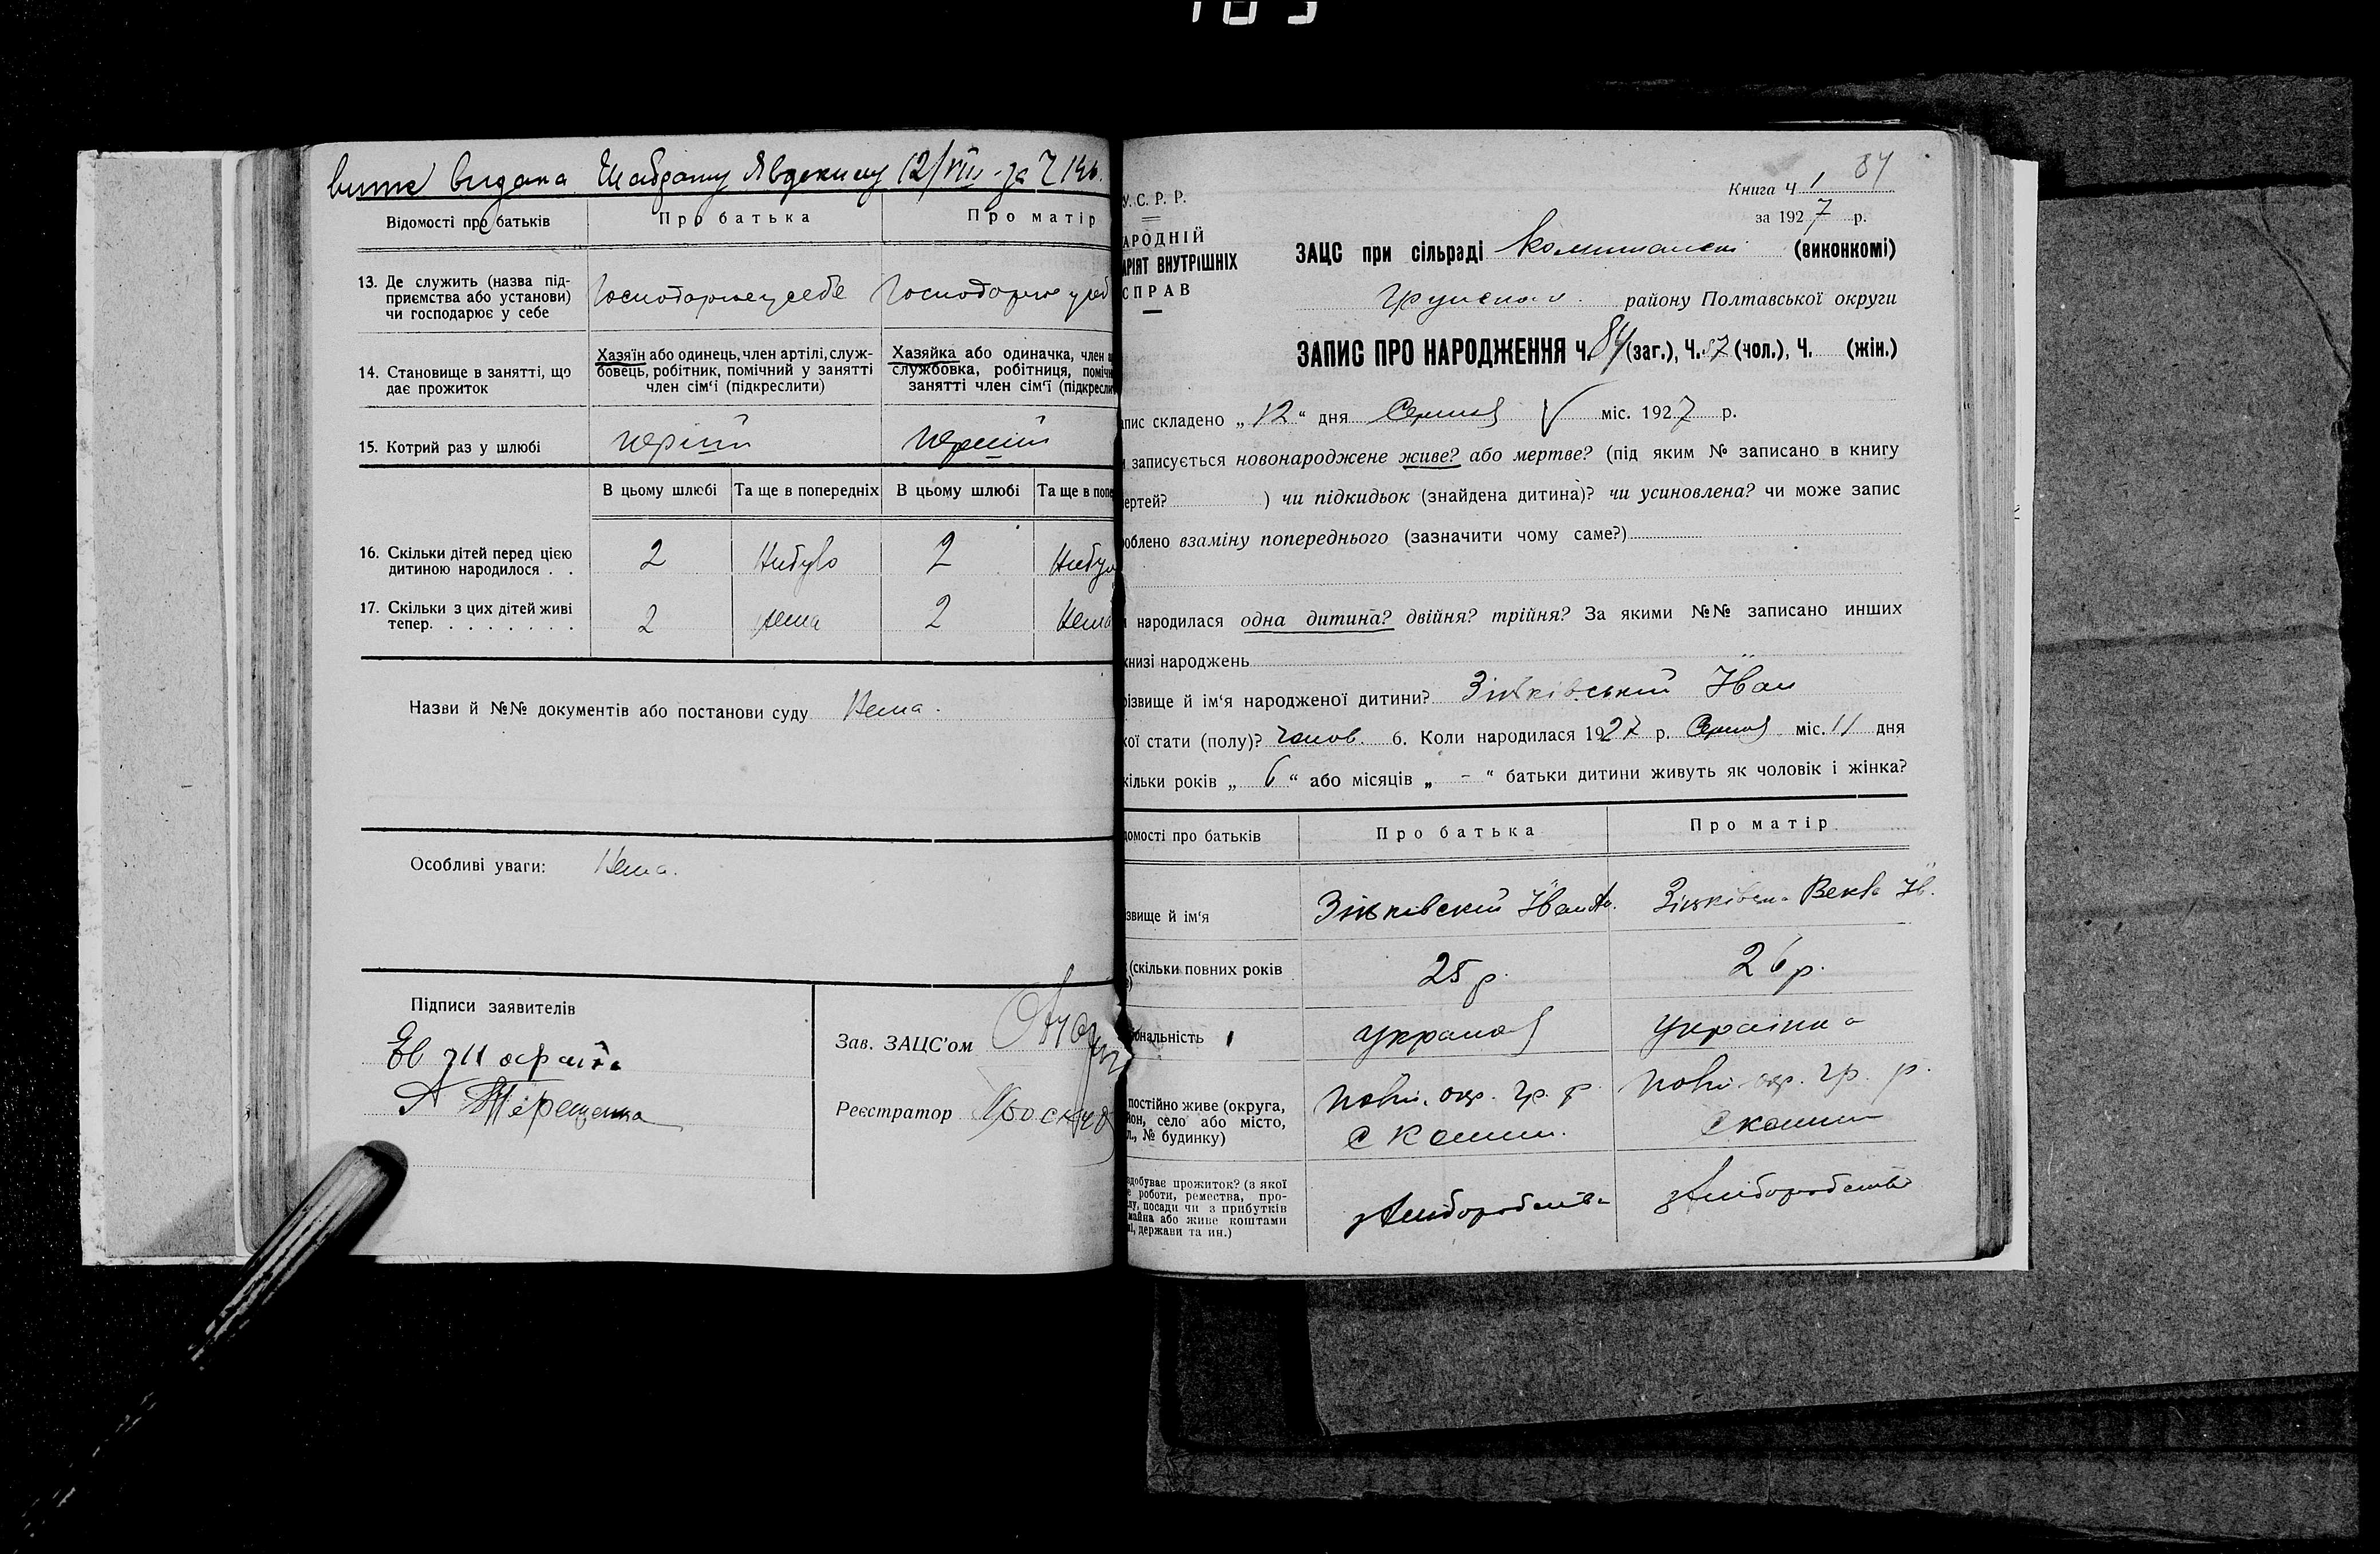 видана 12/VIII - за 7 146.
Відомості про батьків Про батька Про матір
13. Де служить (назва під-
приємства або установи)
чи господарює у себе
Господарює у себе Господарює у себ
14. Становище в занятті, що
дає прожиток
Хазяїн або одинець, член артілі, служ-
бовець, робітник, помічний у занятті
член сім'ї (підкреслити)
Хазяйка або одиначка, член а
службовка, робітниця, помічн
занятті член сім'ї (підкресли
15. Котрий раз у шлюбі перший перший
В цьому шлюбі Та ще в попередніх В цьому шлюбі Та ще в попе
16. Скільки дітей перед цією
дитиною народилося . . 2 Небуло 2 Небуло
17. Скільки з цих дітей живі
тепер. . . . . . . . 2 Нема 2 Нема
Назви й №№ документів або постанови суду Нема.
Особливі уваги: Нема.
Підписи заявителів
Зав. ЗАЦС'ом
А Терещенко
Реєстратор
84
У.С.Р.Р.
Книга Ч 1
за 1927 р.
АРОДНІЙ
АРІЯТ ВНУТРІШНІХ
СПРАВ
ЗАЦС при сільраді (виконкомі)
району Полтавської округи
ЗАПИС ПРО НАРОДЖЕННЯ Ч. 84 (заг.), Ч. 57 (чол.), Ч. (жін.)
апис складено „ 12 “ дня Серпня V міс. 1927 р.
и записується новонароджене живе? або мертве? (під яким № записано в книгу
мертей? ) чи підкидьок (знайдена дитина)? чи усиновлена? чи може запис
облено взаміну попереднього (зазначити чому саме?)
и народилася одна дитина? двійня? трійня? За якими №№ записано инших
книзі народжень
різвище й ім'я народженої дитини? Зіньківський Іван
кої стати (полу)? чолов. 6. Коли народилася 1927 р. Серпня міс. 11 дня
кільки років „ 6 “ або місяців „ - “ батьки дитини живуть як чоловік і жінка?
домості про батьків Про батька Про матір
ізвище й ім'я Зіньківский Іван Зіньківска Векла Ів.
(скільки повних років
25 р. 26 р.
іональність Українец Українка
постійно живе (округа,
йон, село або місто,
л., № будинку)
Полт. окр. Гр. р.
Полт. окр. Гр. р.
здобуває прожиток? (з якої
е роботи, ремества, про-
лу, посади чи з прибутків
майна або живе коштами
ні, держави та ин.)
з хліборобства з хліборобства